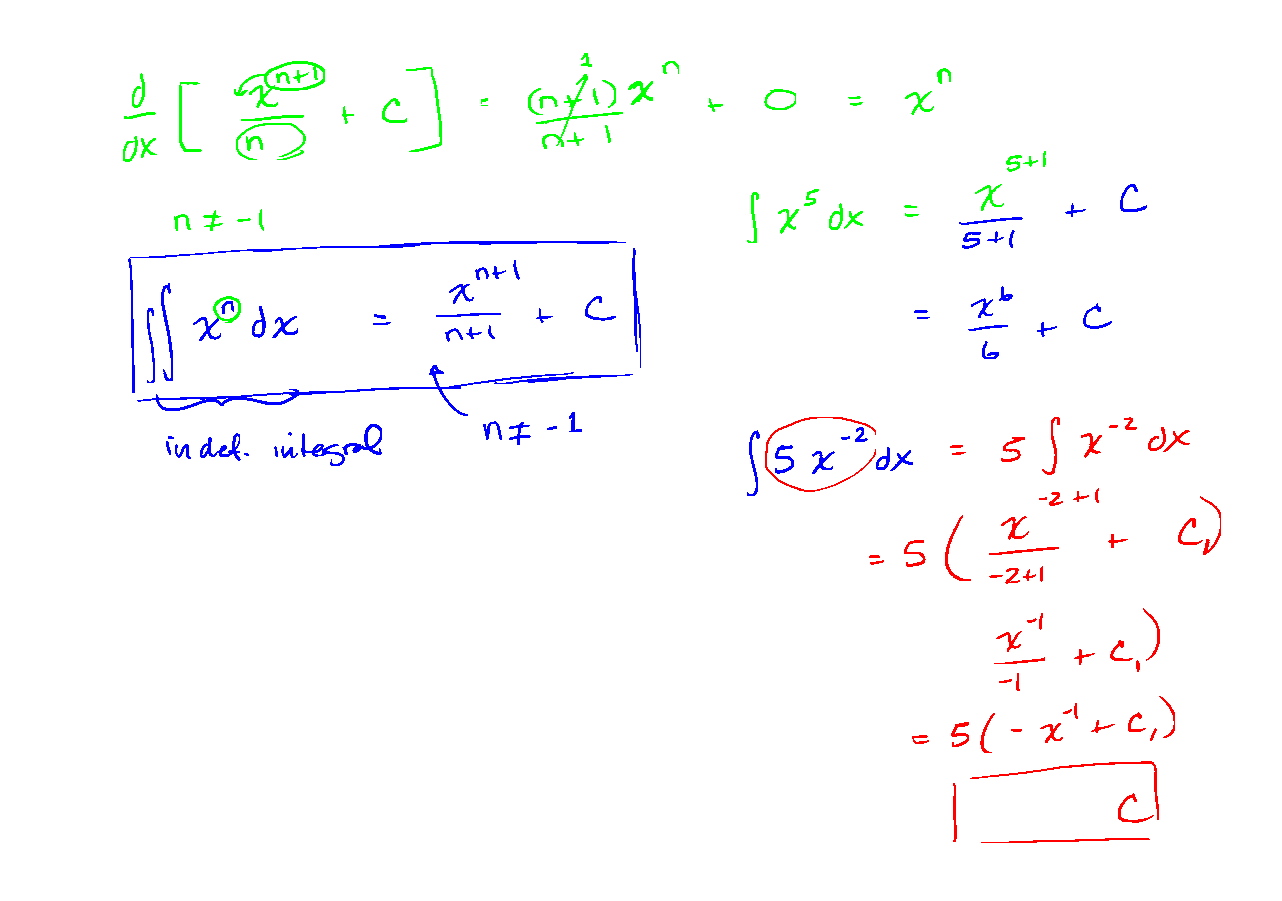 d/dx [ x^(n+1)/n + C ] = (n+1)x^n/(n+1) 1 + 0 = x^n
n ≠ -1
∫∫ x^n dx = x^(n+1)/(n+1) + C
indef. integral
n ≠ -1
∫ x^5 dx = x^(5+1)/(5+1) + C
= x^6/6 + C
∫ 5 x^-2 dx = 5 ∫ x^-2 dx
= 5 ( x^(-2+1)/(-2+1) + C₁)
x^-1/-1 + C₁)
= 5 ( - x^-1 + C₁)
C